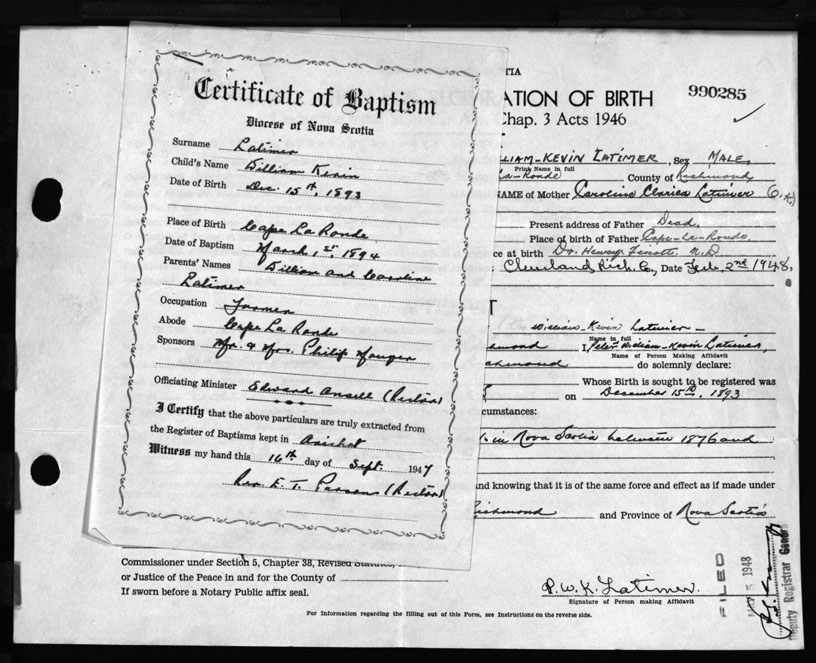 Certificate of Baptism
Diocese of Nova Scotia
Surname Latimer
Child's Name William Kevin
Date of Birth Dec. 15th, 1893
Place of Birth Cape La Ronde
Date of Baptism March, 1st, 1894
Parents' Names William and Caroline
Latimer
Occupation Farmer
Abode Cape La Ronde
Sponsors Mr. & Mrs. Philip Mauger
Officiating Minister Edward Ansell (Rector)
I Certify that the above particulars are truly extracted from
the Register of Baptisms kept in Arichat
Witness my hand this 16th day of Sept. 1947
Rev. E. T. Parsons (Rector)
TIA
ATION OF BIRTH
990285
Chap. 3 Acts 1946
LLIAM-KEVIN LATIMER, Sex MALE,
Print Name in full
La-Ronde County of Richmond
NAME of Mother Caroline Clarica Latimer
Present address of Father Dead.
Place of birth of Father Cape-La-Ronde.
ce at birth Dr. Henry M.D.
Cleveland Rich. Co., Date Feb. 2nd 1948.
T
William-Kevin Latimer-
Name in full
Richmond I, Peter William-Kevin Latimer,
Name of Person Making Affidavit
Richmond do solemnly declare:
Whose Birth is sought to be registered was
on December 15th, 1893
cumstances:
in Nova Scotia between 1876 and
and knowing that it is of the same force and effect as if made under
Richmond and Province of Nova Scotia
Commissioner under Section 5, Chapter 38, Revised Statutes,
or Justice of the Peace in and for the County of
If sworn before a Notary Public affix seal.
P.W.K. Latimer.
Signature of Person making Affidavit
For Information regarding the filling out of this Form, see Instructions on the reverse side.
FILED
1948
Deputy Registrar General